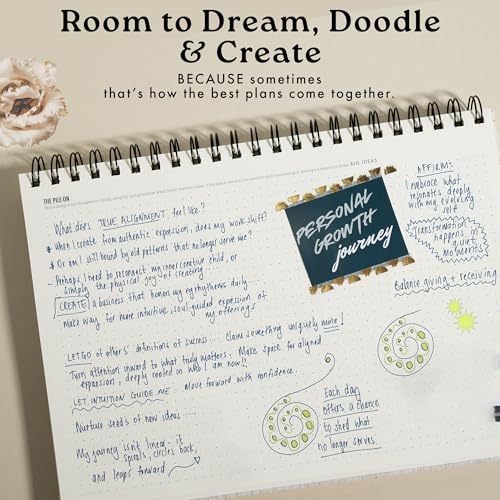 Room to Dream, Doodle
& Create
BECAUSE sometimes
that's how the best plans come together.
THE PILE-ON
BIG IDEAS
What does TRUE ALIGNMENT feel like?
* When I create from authentic expression, does my work shift?
* Or am I still bound by old patterns that no longer serve me?
~ Perhaps I need to reconnect my inner creative child, or
simply the physical joy of creating...
CREATE a business that honors my rhythms daily....
Make way for more intuitive, soul-guided expression of
my offerings
LET GO of others' definitions of success.... Claim something uniquely mine!
Turn attention inward to what truly matters. Make space for aligned
expansion, deeply rooted in who I am now!!
LET INTUITION GUIDE ME... Move forward with confidence.
Nurture seeds of new ideas.....
My journey isn't linear - it
spirals, circles back,
and leaps forward
PERSONAL
GROWTH
journey
AFFIRM:
I embrace what
resonates deeply
with my evolving
self
Transformation
happens
in
quiet
moments
Balance giving + receiving
Each day
offers a chance
to shed what
no longer serves.